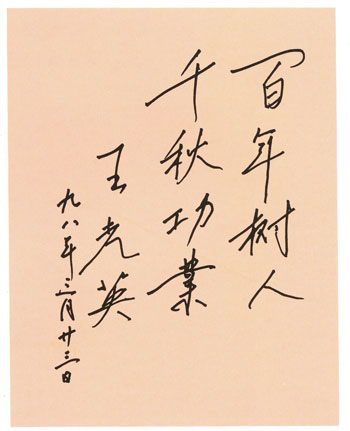 百年树人
千秋功業
王光英
九八年三月廿三日